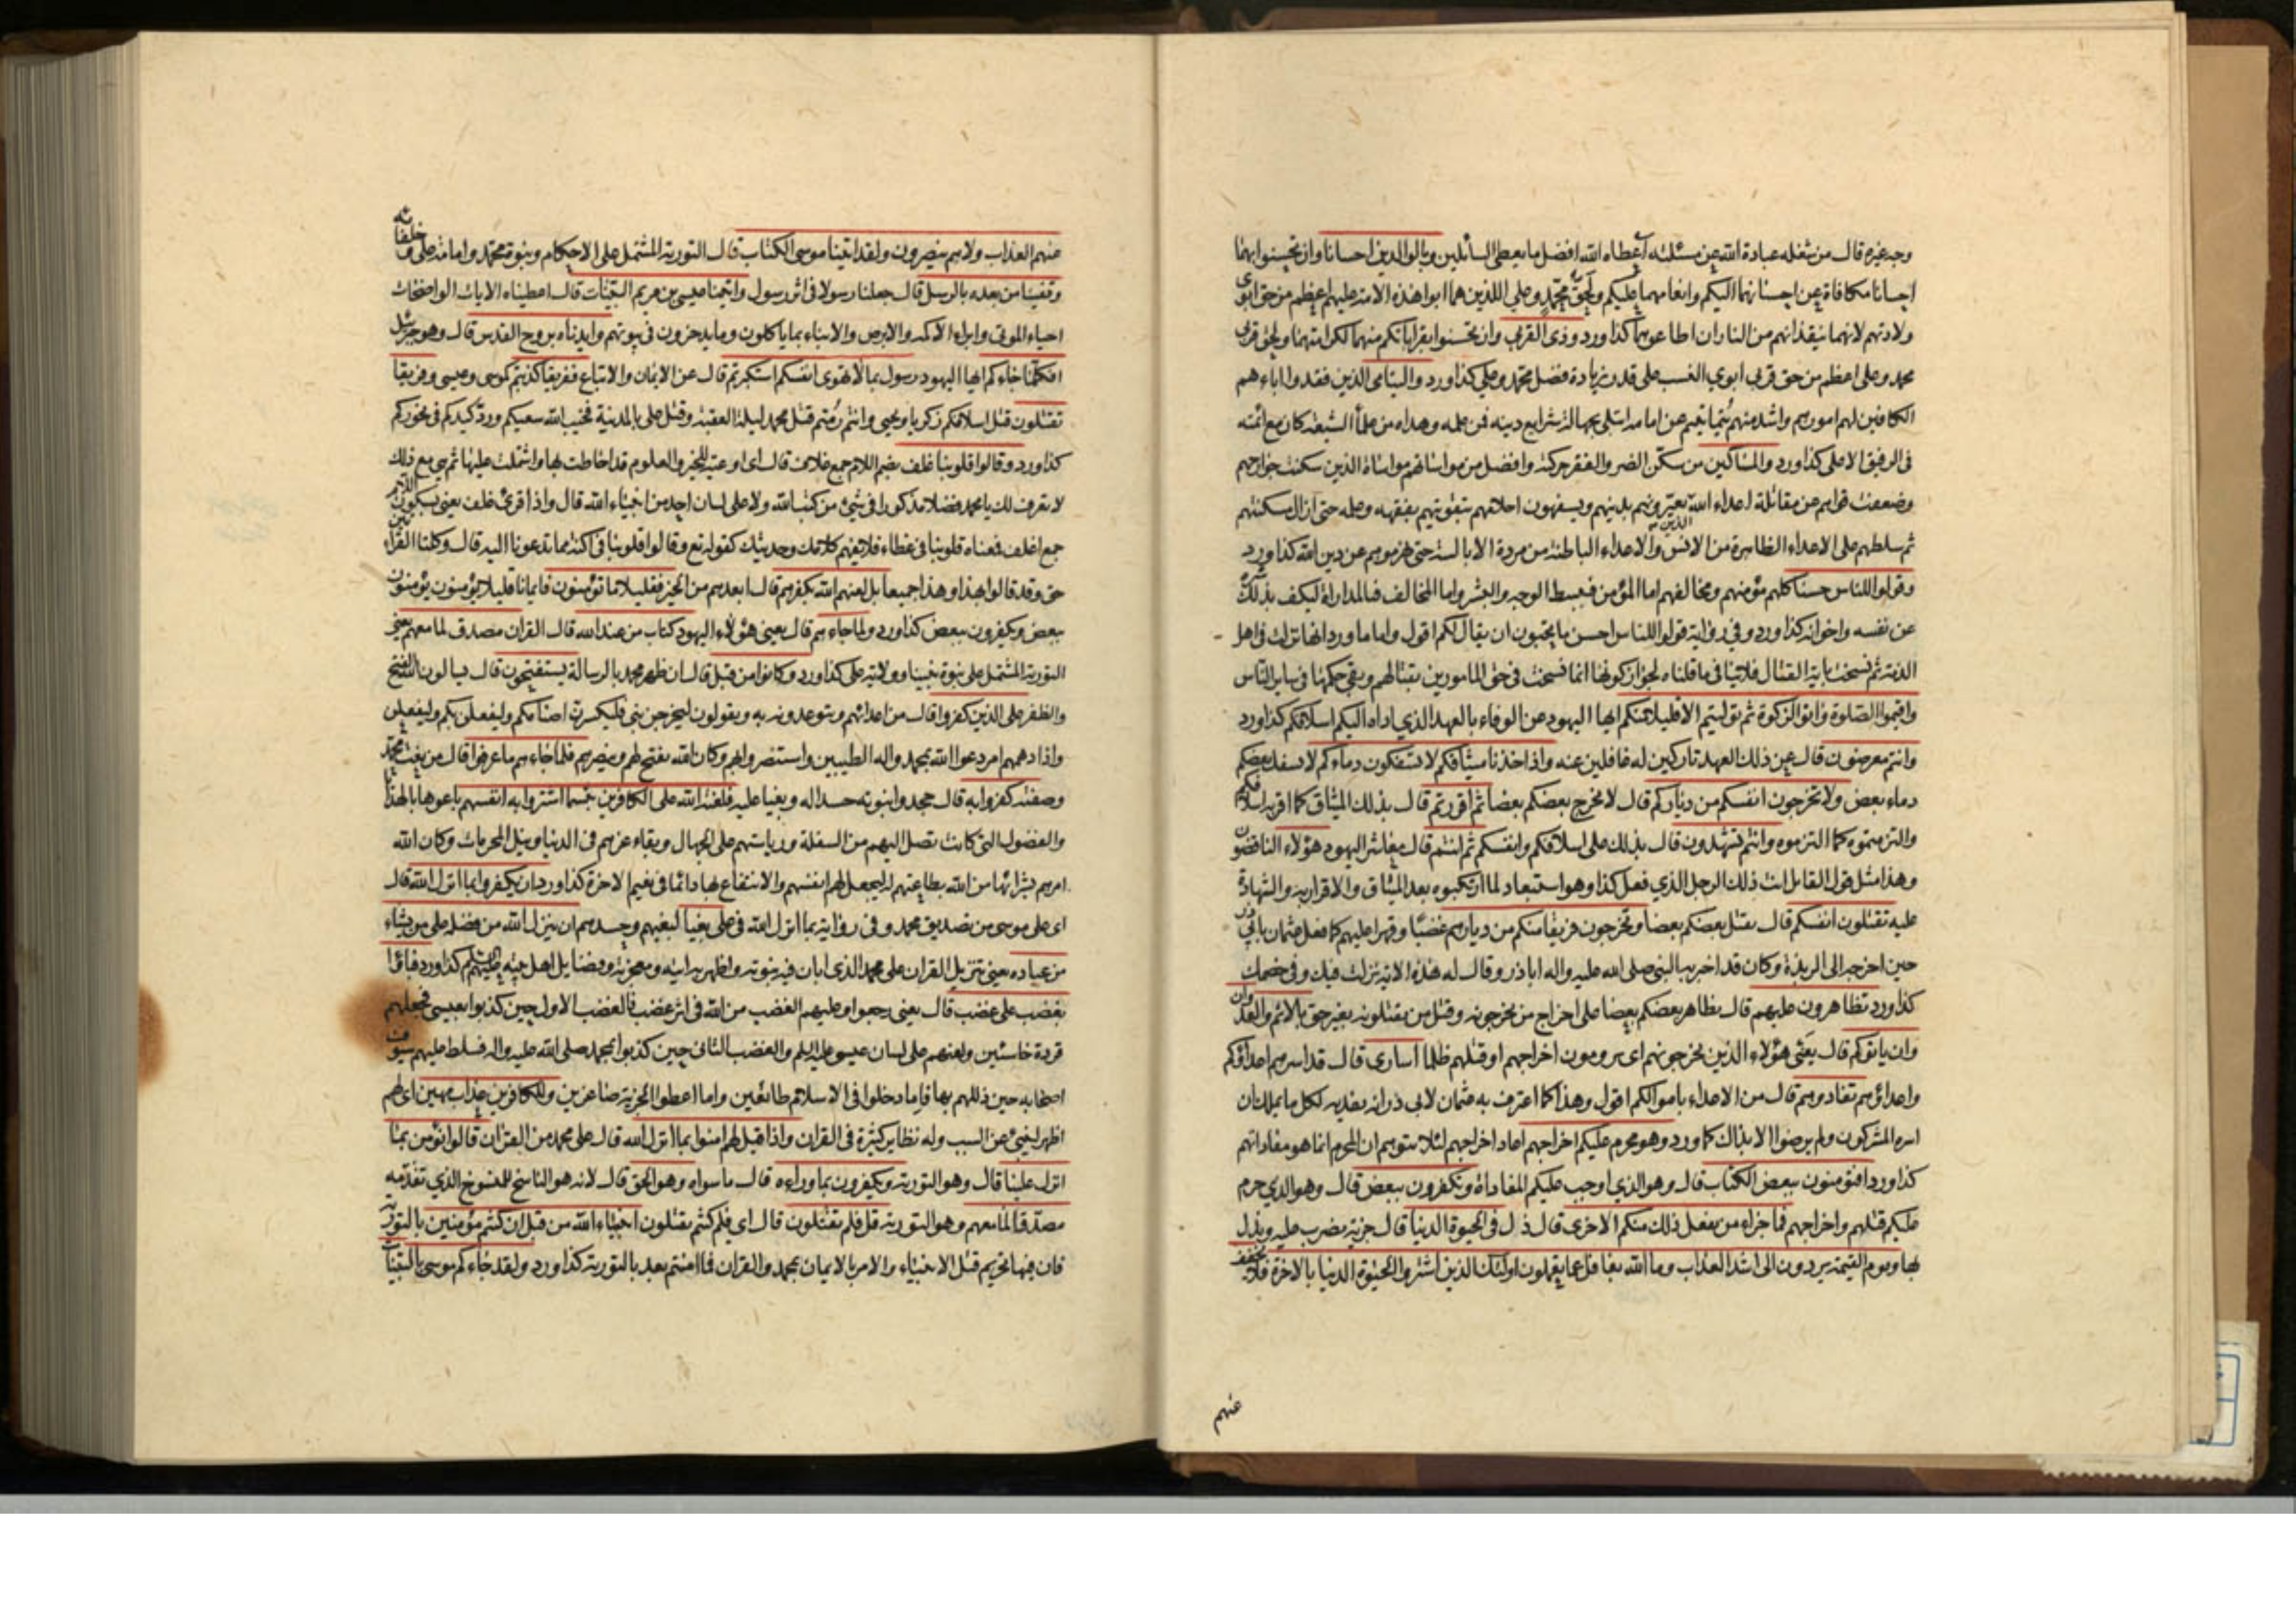 وجه غيره قال من شغله عبادة الله عن مسئلته اعطاه الله افضل ما يعطى السائلين وبالوالدين احسانا وان تحسنوا بهما
احسانا مكافاة عن احسانهما اليكم وانعامهما عليكم وبحق محمد وعلي اللذين هما ابوا هذه الامة عليهم اعظم من حق ابوى
ولادتهم لانهما ينقذانهم من النار ان اطاعوهما كذا ورد وذى القربى وان تحسنوا بقراباتكم منهما لكرامتهما ولحق قربى
محمد وعلى اعظم من حق قربى ابوي النسب على قدر زيادة فضل محمد وعلي كذا ورد واليتامى الذين فقدوا اباءهم
الكافين لهم امورهم واشد منهم يتما يتيم عن امامه ابتلى بجهالة شرايع دينه فمن علمه وهداه من علماء الشيعة كان مع ائمته
فى الرفيق الاعلى كذا ورد والمساكين من سكن الضر والفقر حركته وافضل من مواساتهم مواساة الذين سكنت جوارحهم
وضعفت قواهم عن مقاتلة اعداء الله الذين يعيرونهم بدينهم ويسفهون احلامهم بتقويتهم بفقهه وعلمه حتى ازال مسكنتهم
ثم سلطهم على الاعداء الظاهرة من الانس والاعداء الباطنة من مردة الابالسة حتى هزموهم عن دين الله كذا ورد
وقولوا للناس حسنا كلهم مؤمنهم ومخالفهم اما المؤمن فيبسط الوجه والبشر واما المخالف فبالمداراة ليكف بذلك شره
عن نفسه واخوانه كذا ورد وفي رواية قولوا للناس احسن ما يحبون ان يقال لكم اقول واما ما ورد انها نزلت فى اهل
الذمة ثم نسخت باية القتال فلا ينافى ما قلناه لجواز كونها انما نسخت فى حق المامورين بقتالهم وبقى حكمها فى ساير الناس
واقيموا الصلوة واتوا الزكوة ثم توليتم الا قليلا منكم ايها اليهود عن الوفاء بالعهد الذي اداه اليكم اسلافكم كذا ورد
وانتم معرضون قال عن ذلك العهد تاركين له غافلين عنه واذ اخذنا ميثاقكم لا تسفكون دماءكم لا يسفك بعضكم
دماء بعض ولا تخرجون انفسكم من دياركم قال لا يخرج بعضكم بعضا ثم اقررتم قال بذلك الميثاق كما اقر به اسلافكم
والتزمتموه كما التزموه وانتم تشهدون قال بذلك على اسلافكم وانفسكم ثم انتم قال معاشر اليهود هؤلاء الناقضون
وهذا مثل قول القائل انت ذلك الرجل الذي فعل كذا وهو استبعاد لما ارتكبوه بعد الميثاق والاقرار به والشهادة
عليه تقتلون انفسكم قال يقتل بعضكم بعضا وتخرجون فريقا منكم من ديارهم غضبا وقهرا عليهم كما فعل عثمان بابي ذر
حين اخرجه الى الربذة وكان قد اخبر به النبي صلى الله عليه واله اباذر وقال له هذه الاية نزلت فيك وفي خصمك
كذا ورد تظاهرون عليهم قال يظاهر بعضكم بعضا على اخراج من تخرجونه وقتل من تقتلونه بغير حق بالاثم والعدوان
وان ياتوكم قال يعنى هؤلاء الذين تخرجونهم اى ترومون اخراجهم او قتلهم ظلما اسارى قال قد اسرهم اعداؤكم
واعداؤهم تفادوهم قال من الاعداء باموالكم اقول وهذا كما اعترف به عثمان لابي ذر انه يفديه لكل ما يملك ان
اسره المشركون ولم يرضوا الا بذاك كما ورد وهو محرم عليكم اخراجهم اعاد اخراجهم لئلا يتوهم ان المحرم انما هو مفاداتهم
كذا ورد افتؤمنون ببعض الكتاب قال وهو الذي اوجب عليكم المفاداة وتكفرون ببعض قال وهو الذي حرم
عليكم قتلهم واخراجهم فما جزاء من يفعل ذلك منكم الا خزى قال ذل فى الحيوة الدنيا قال جزية يضرب عليه ويذل
بها ويوم القيمة يردون الى اشد العذاب وما الله بغافل عما يعملون اولئك الذين اشتروا الحيوة الدنيا بالاخرة فلا يخفف
عنهم
عنهم العذاب ولا هم ينصرون ولقد اتينا موسى الكتاب قال التورية المشتمل على الاحكام وبنبوة محمد وامامة على وخلفائه
وقفينا من بعده بالرسل قال جعلنا رسولا فى اثر رسول واتينا عيسى بن مريم البينات قال اعطيناه الايات الواضحات
احياء الموتى وابراء الاكمه والابرص والانباء بما ياكلون وما يدخرون فى بيوتهم وايدناه بروح القدس قال وهو جبرئيل
افكلما جاءكم ايها اليهود رسول بما لا تهوى انفسكم استكبرتم قال عن الايمان والاتباع ففريقا كذبتم كموسى وعيسى وفريقا
تقتلون قتل اسلافكم زكريا ويحيى وانتم رمتم قتل محمد ليلة العقبة وقتل على بالمدينة فخيب الله سعيكم ورد كيدكم فى نحوركم
كذا ورد وقالوا قلوبنا غلف بضم اللام جمع غلاف قال اى اوعية للخير والعلوم قد احاطت بها واشتملت عليها ثم هي مع ذلك
لا تعرف لك يا محمد فضلا مذكورا فى شىء من كتب الله ولا على لسان احد من انبياء الله قال واذا قرئ غلف يعنى بسكون اللام
جمع اغلف فمعناه قلوبنا فى غطاء فلا تفهم كلامك وحديثك كقوله تع وقالوا قلوبنا فى اكنة مما تدعونا اليه قال وكلتا القراءتين
حق وقد قالوا بهذا وهذا جميعا بل لعنهم الله بكفرهم قال ابعدهم من الخير فقليلا ما يؤمنون فايمانا قليلا يؤمنون يؤمنون
ببعض ويكفرون ببعض كذا ورد ولما جاءهم قال يعنى هؤلاء اليهود كتاب من عند الله قال القران مصدق لما معهم يعني
التورية المشتمل على نبوة نبينا وولاية على كذا ورد وكانوا من قبل قال ان ظهر محمد بالرسالة يستفتحون قال يسالون الله الفتح
والظفر على الذين كفروا قال من اعدائهم ويتوعدونهم به ويقولون ليخرجن نبى فليكسرن اصنامكم وليفعلن بكم وليفعلن
واذا دهمهم امر دعوا الله بمحمد واله الطيبين واستنصروا بهم وكان الله يفتح لهم وينصرهم فلما جاءهم ما عرفوا قال من نعت محمد
وصفته كفروا به قال جحدوا نبوته حسدا له وبغيا عليه فلعنة الله على الكافرين بئسما اشتروا به انفسهم باعوها بالهدايا
والفضول التى كانت تصل اليهم من السفلة ورياستهم على الجهال وبقاء عزهم فى الدنيا ونيل المحرمات وكان الله
امرهم بشرائها من الله بطاعتهم له ليجعل لهم انفسهم والانتفاع بها دائما فى نعيم الاخرة كذا ورد ان يكفروا بما انزل الله قال
اى على موسى من تصديق محمد وفى رواية بما انزل الله فى على بغيا لبغيهم وحسدهم ان ينزل الله من فضله على من يشاء
من عباده يعنى تنزيل القران على محمد الذى ابان فيه نبوته واظهر به ايته ومعجزته وفضايل اهل بيته كذا ورد فباؤا
بغضب على غضب قال يعنى رجعوا وعليهم الغضب من الله فى اثر غضب فالغضب الاول حين كذبوا بعيسى فجعلهم
قردة خاسئين ولعنهم على لسان عيسى عليه السلم والغضب الثانى حين كذبوا بمحمد صلى الله عليه واله فسلط عليهم سيوف
اصحابه حين ذللهم بها فاما دخلوا فى الاسلام طائعين واما اعطوا الجزية صاغرين وللكافرين عذاب مهين اى لهم
اظهر لينبئ عن السبب وله نظاير كثيرة فى القران واذا قيل لهم امنوا بما انزل الله قال على محمد من القران قالوا نؤمن بما
انزل علينا قال وهو التورية ويكفرون بما وراءه قال ما سواه وهو الحق قال لانه هو الناسخ للمنسوخ الذي تقدمه
مصدقا لما معهم وهو التورية قل فلم تقتلون قال اى فلم كنتم تقتلون انبياء الله من قبل ان كنتم مؤمنين بالتورية
فان فيها تحريم قتل الانبياء والامر بالايمان بمحمد والقران فما امنتم بعد بالتورية كذا ورد ولقد جاءكم موسى بالبينات